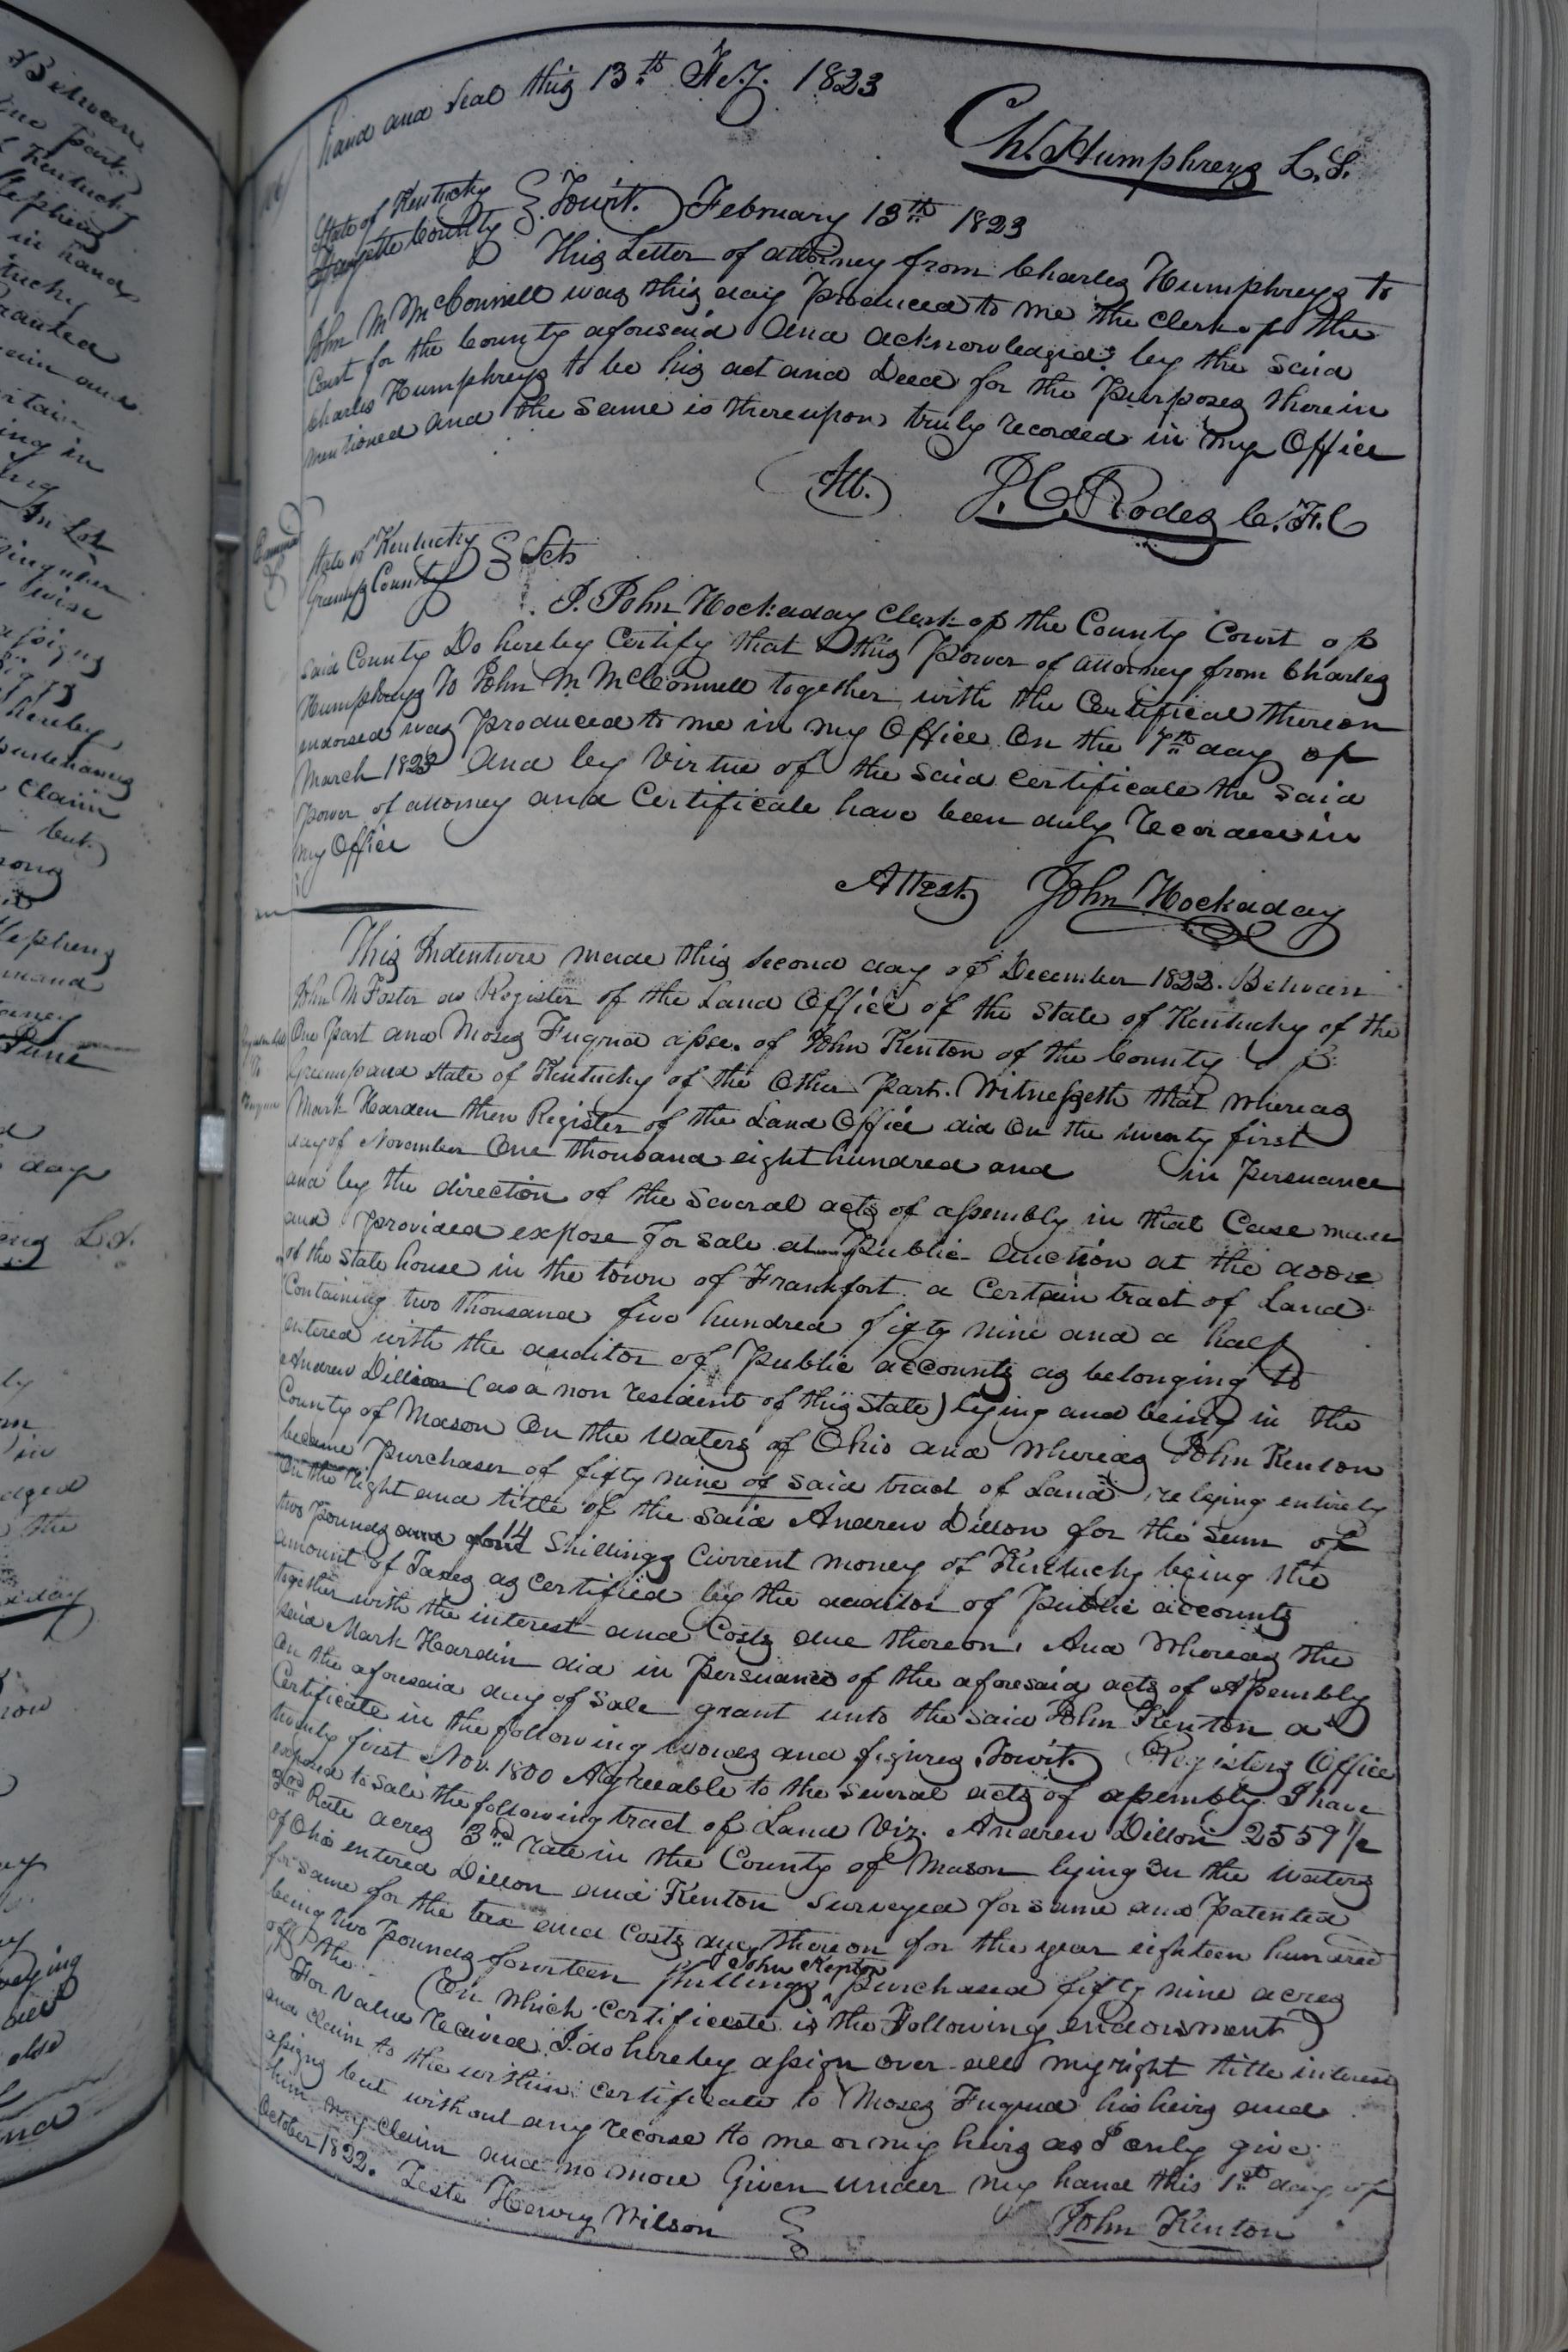 hand and Seal this 13th Fey. 1823
Ch. Humphreys L.S.
State of Kentucky
Fayette County } Towit. February 13th 1823
This Letter of attorney from Charles Humphreys to
John M McConnell was this day Produced to me the Clerk of the
Court for the County aforesaid and acknowledged by the said
Charles Humphreys to be his act and Deed for the Purposes therein
mentioned and the same is thereupon truly recorded in my Office
Att. J. C. Rodes C.F.C
State of Kentucky
Greenup County } Sct
I. John Hockaday Clerk of the County Court of
said County Do hereby Certify that this Power of attorney from Charles
Humphreys to John M McConnell together with the Certificate thereon
endorsed was Produced to me in my Office On the 7th day of
March 1823 and by Virtue of the said certificate the said
Power of attorney and Certificate have been duly Recorded in
my Office
Attest John Hockaday
This Indenture made this second day of December 1822. Between
John M Foster as Register of the Land Office of the State of Kentucky of the
One Part and Moses Fuqua assee. of John Kenton of the County of
Greenup and state of Kentucky of the Other Part. Witnesseth that whereas
Mark Harden then Register of the Land Office did On the twenty first
day of November One thousand eight hundred and in Persuance
and by the direction of the several acts of assembly in that Case made
and provided expose for sale at Public auction at the doore
of the State house in the town of Frankfort a Certain tract of Land
Containing two thousand five hundred fifty nine and a half
entered with the auditor of Public accounts as belonging to
Andrew Dillon (as a non resident of this State) lying and being in the
County of Mason On the waters of Ohio and whereas John Kenton
became Purchaser of fifty nine of said tract of Land relying entirely
On the right and title of the said Andrew Dillon for the sum of
two Pounds and 14 Shillings Current money of Kentucky being the
amount of Taxes as certified by the auditor of Public accounts
together with the interest and Costs due thereon, And Whereas the
said Mark Hardin did in Persuance of the aforesaid acts of Assembly
On the aforesaid day of Sale grant unto the said John Kenton a
Certificate in the following words and figures, Towit. (Registers Office
twenty first Nov. 1800 Agreeable to the several acts of assembly I have
exposed to sale the following tract of Land Viz. Andrew Dillon 2559 1/2
2nd Rate acres 3rd rate in the County of Mason lying On the waters
of Ohio entered Dillon and Kenton Surveyed for same and Patented
for same for the tax and Costs due thereon for the year eighteen hundred
being two Pounds fourteen Shillings ^John Kenton Purchased fifty nine acres
off the (On which certificate is the Following endorsment)
For value Received I do hereby assign over all my right title interest
and claim to the within certificate to Moses Fuqua his heirs and
assigns but without any recorse to me or my heirs as I only give
him my Claim and no more Given under my hand this 1st day of
October 1822.
Teste Henry Wilson } John Kenton